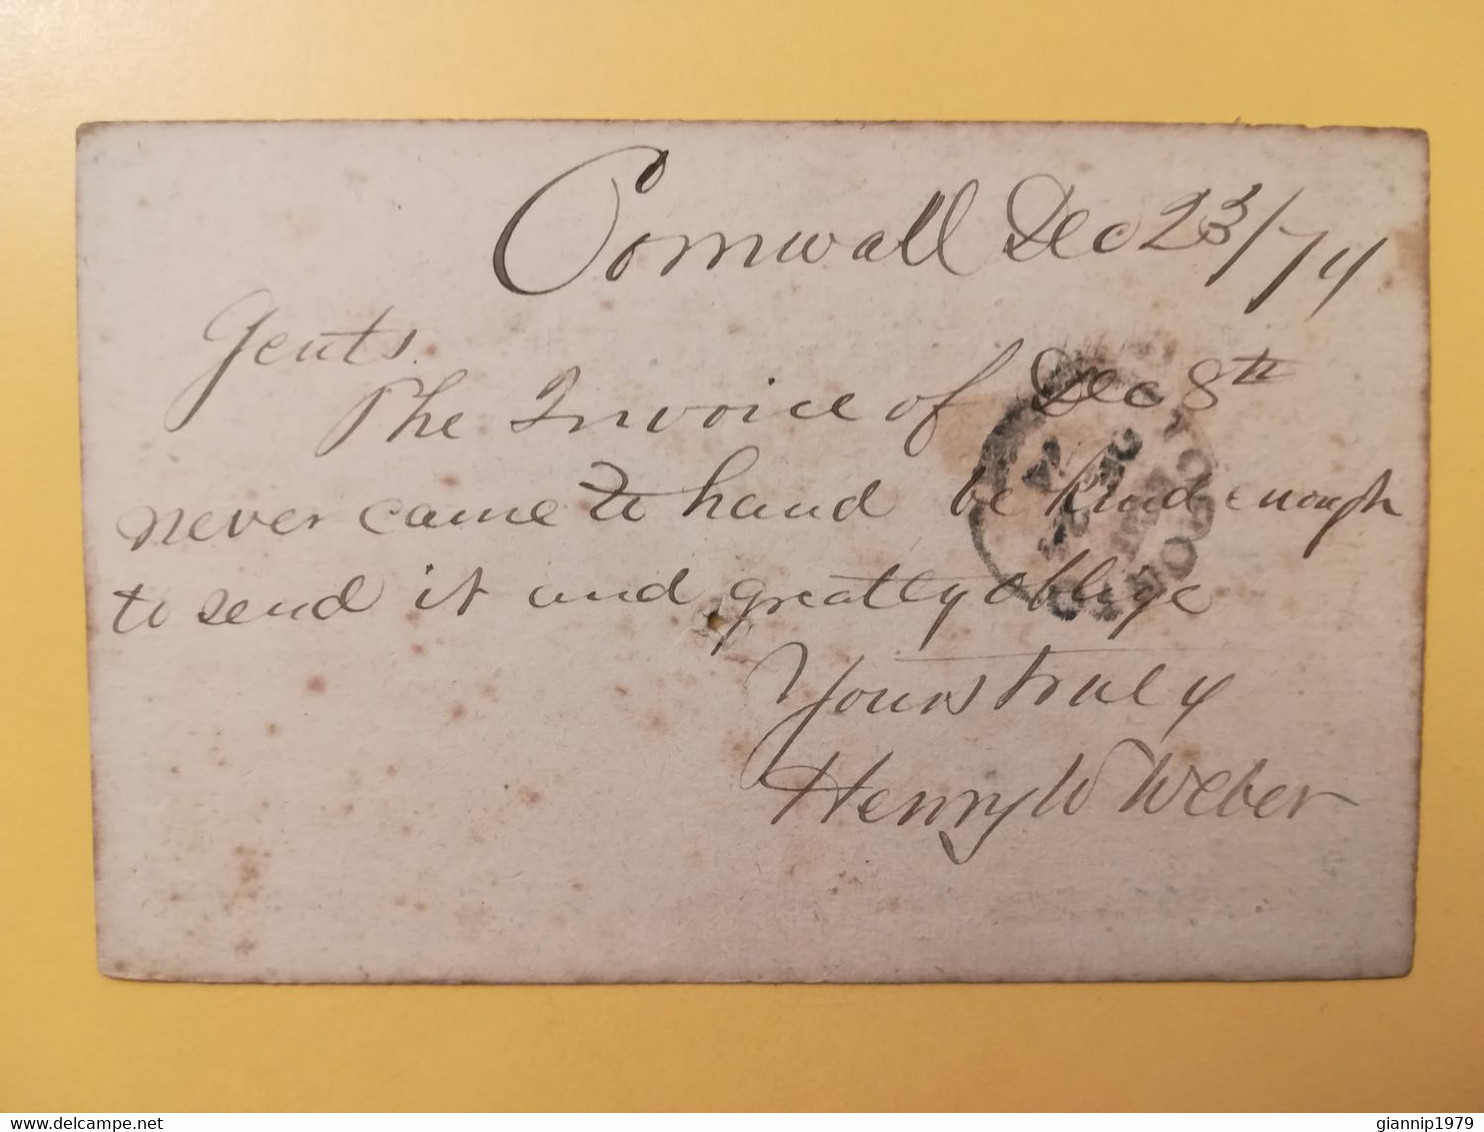 Cornwall Dec 23/74
Gents
The Invoice of Dec 8th
never came to hand be kind enough
to send it and greatly oblige
Yours truly
Henry W Weber
delcampe.net
giannip1979